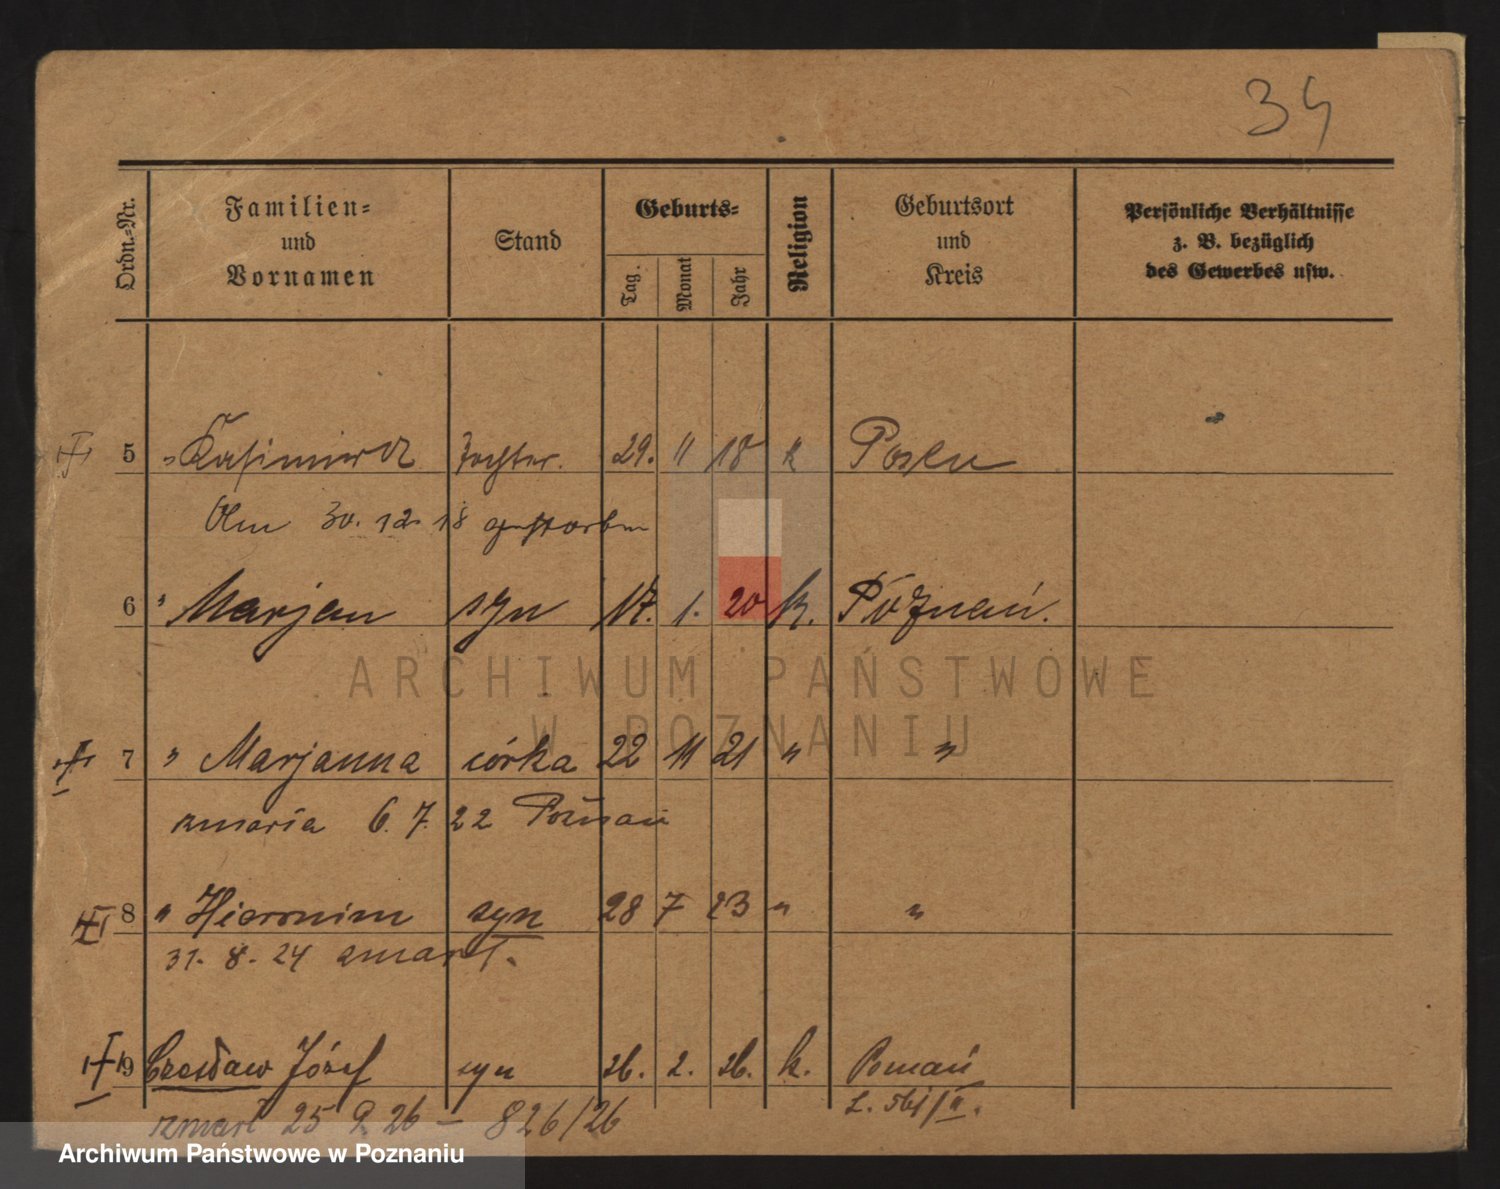 34
Ordn.=Nr.
Familien=
und
Vornamen
Stand
Geburts=
Tag.
Monat
Jahr
Religion
Geburtsort
und
Kreis
Persönliche Verhältnisse
z. B. bezüglich
des Gewerbes usw.
5 " Kasimira Tochter. 29. 11 18 k Posen
Am 30. 12. 18 gestorben
6 " Marjan syn 17. 1. 20 k. Poznań.
ARCHIWUM PAŃSTWOWE
W POZNANIU
7 " Marjanna córka 22 11 21 " "
zmarła 6. 7. 22 Poznań
8 " Hieronim syn 28 7 23 " "
31. 8. 24 zmarł.
9 Czesław Józef syn 26. 2. 26. k. Poznań
zmarł 25 9. 26 – 826/26
Archiwum Państwowe w Poznaniu